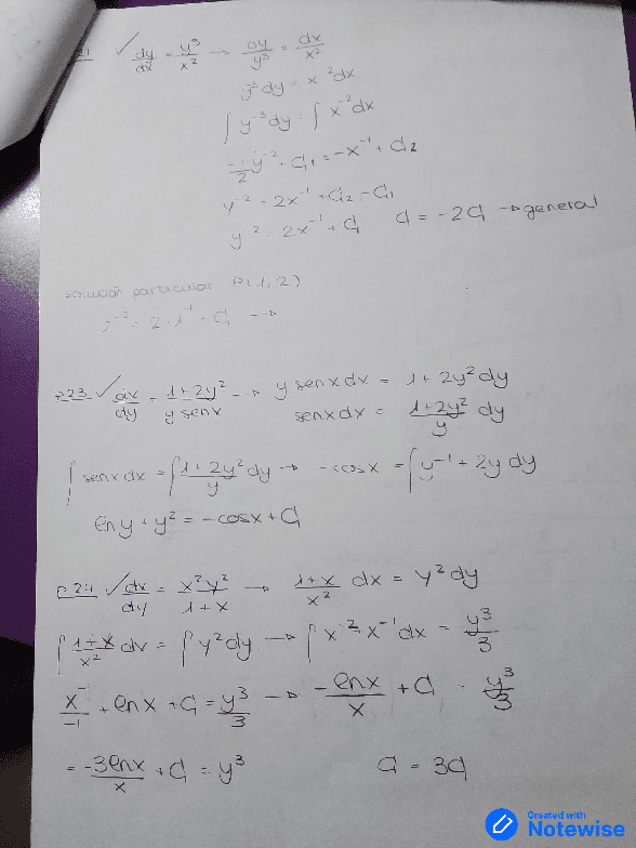 21 ✓ dy/dx = y³/x² → dy/y³ = dx/x²
y⁻³dy = x⁻²dx
∫ y⁻³dy = ∫ x⁻²dx
-1/2 y⁻² + C₁ = -x⁻¹ + C₂
y⁻² = 2x⁻¹ + C₂ - C₁
y⁻² = 2x⁻¹ + C C = -2C → general
solución particular P(1,2)
2⁻² = 2·1⁻¹ + C →
P23 ✓ dx/dy = 1+2y²/y senx → y senx dx = 1+2y² dy
senx dx = 1+2y²/y dy
∫ senx dx = ∫ 1+2y²/y dy → -cosx = ∫ y⁻¹ + 2y dy
ln y + y² = -cosx + C
P.24 ✓ dx/dy = x²y²/1+x → 1+x/x² dx = y² dy
∫ 1+x/x² dx = ∫ y² dy → ∫ x⁻² + x⁻¹ dx = y³/3
x⁻¹/-1 + ln x + C = y³/3 → -ln x/x + C = y³/3
= -3ln x/x + C = y³ C = 3C
Created with
Notewise